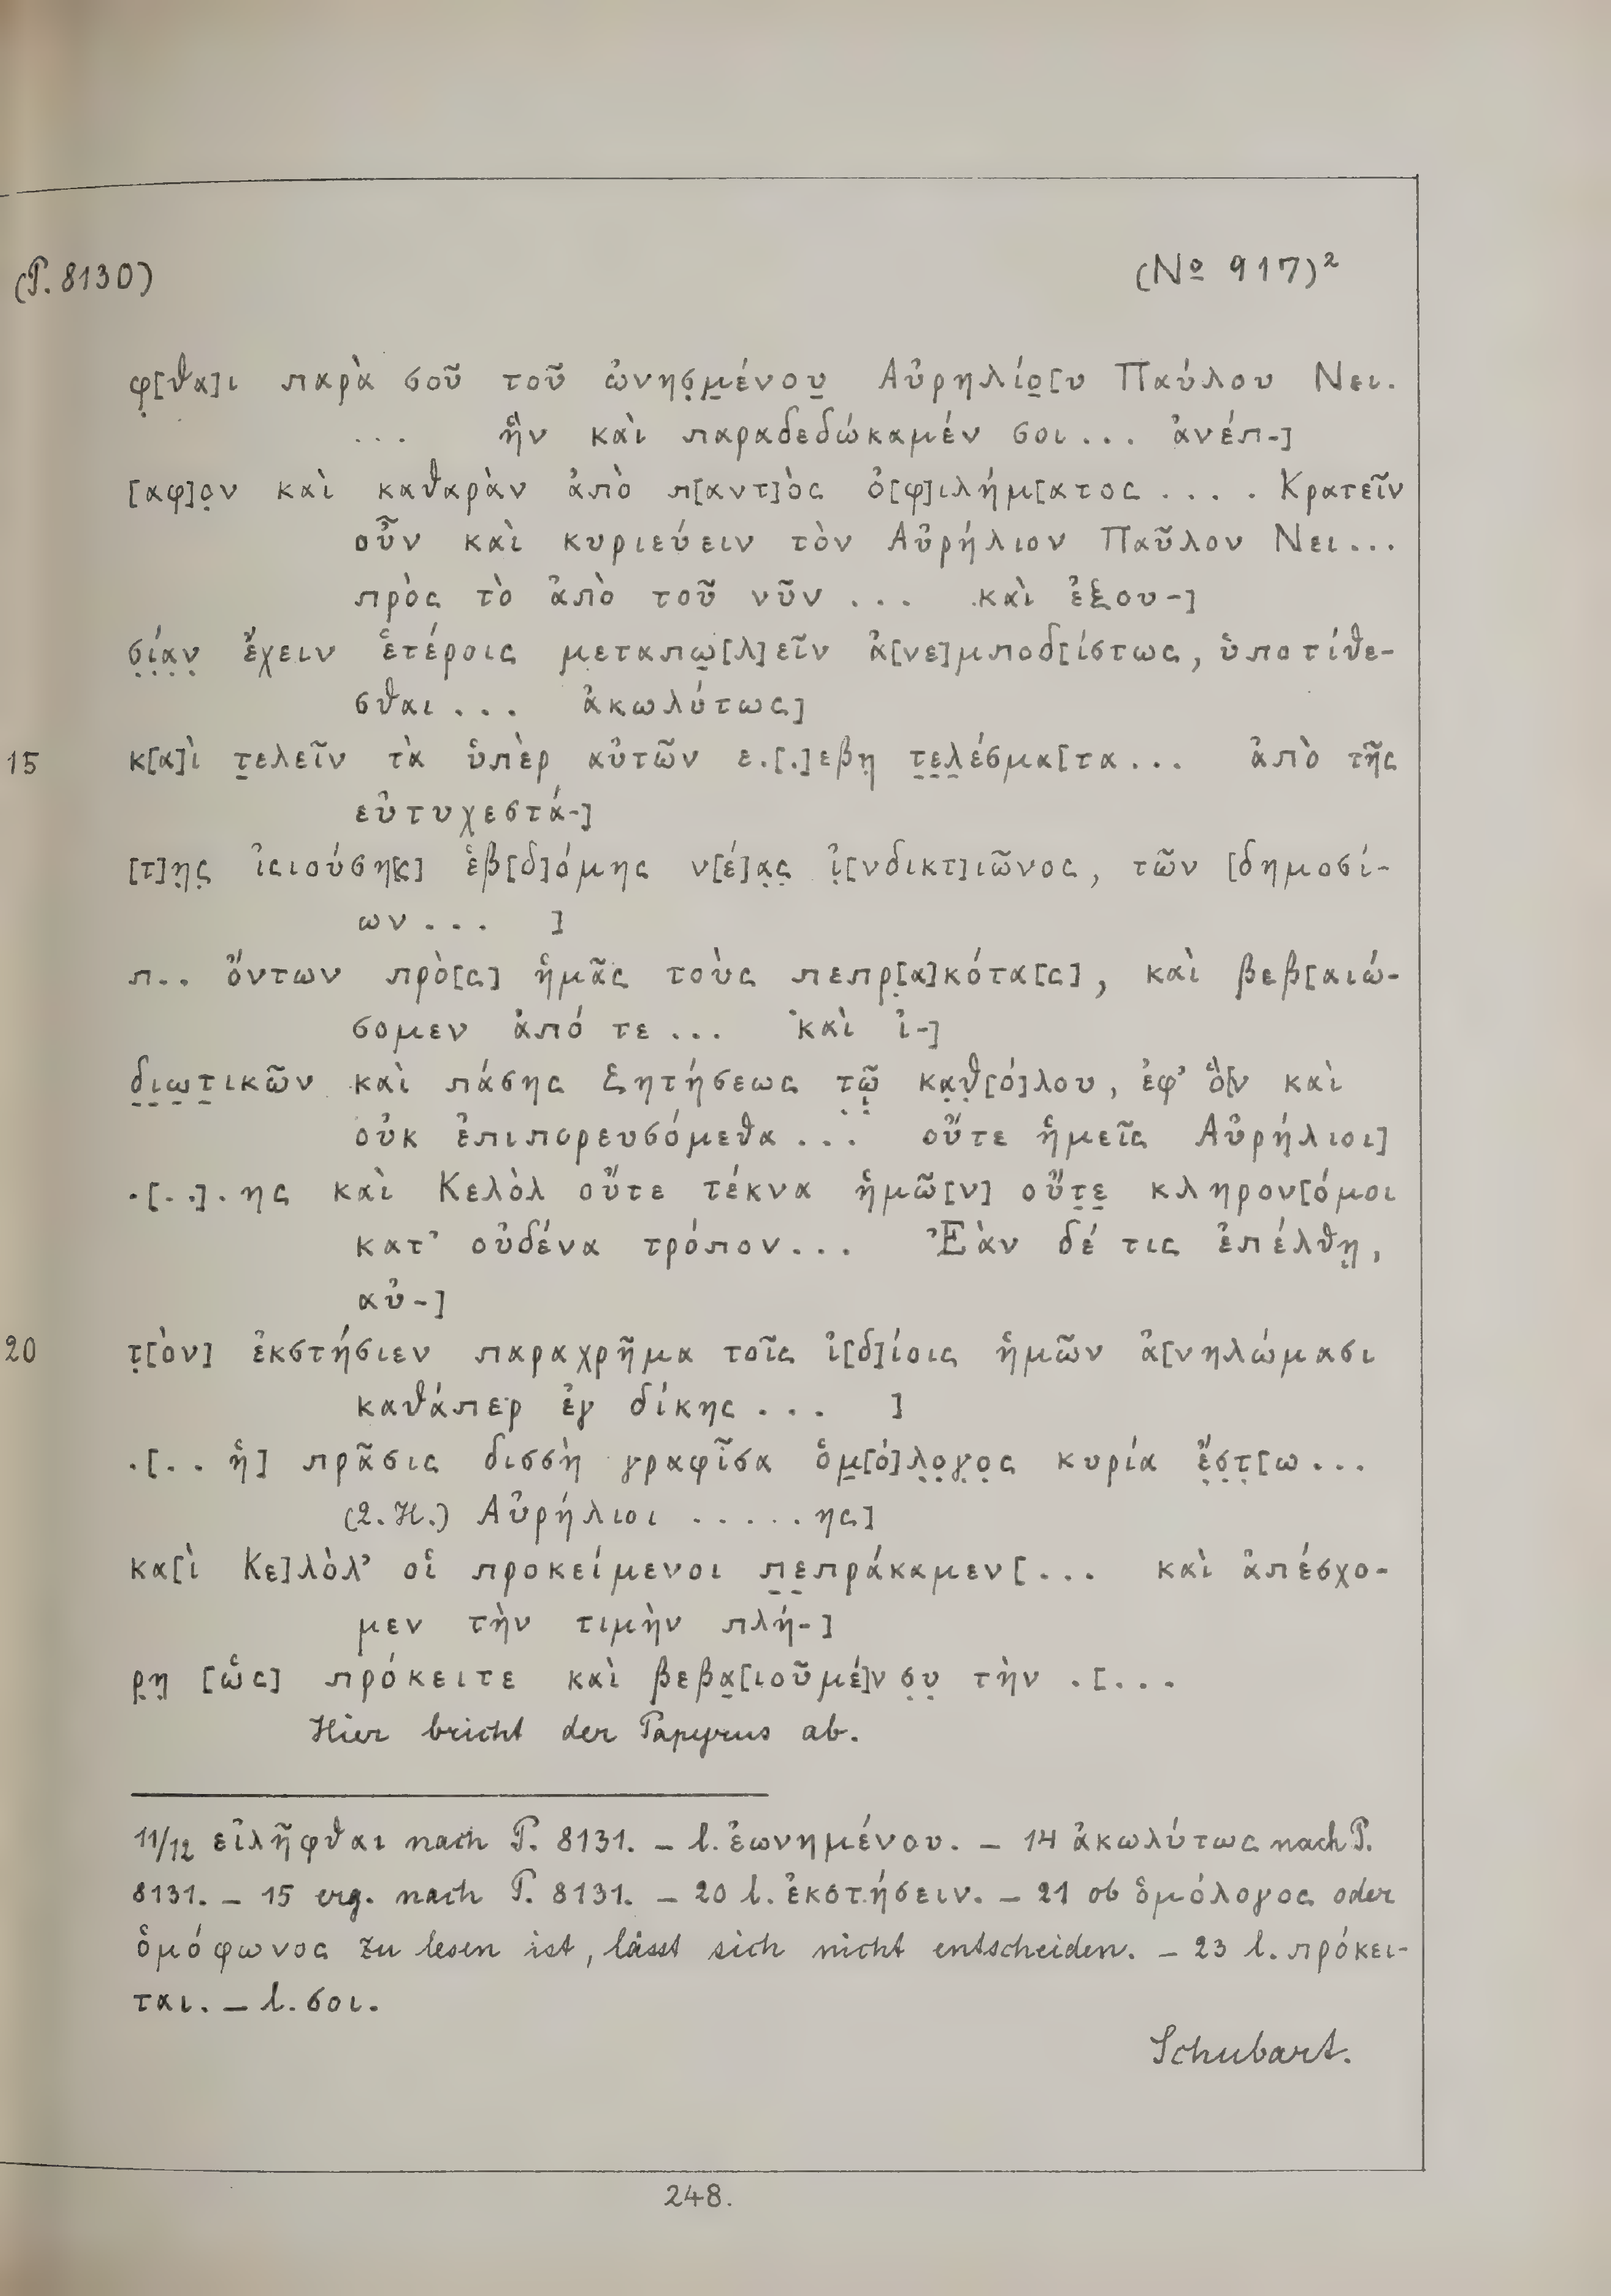 (P. 8130)
(No 917)²
φ̣[θα]ι παρὰ σοῦ τοῦ ὠνησ̣μ̣ένου̣ Αὐρηλίο̣[υ Παύλου Νει.
... ἣν καὶ παραδεδώκαμέν σοι... ἀνέπ-]
[αφ]ο̣ν καὶ καθαρὰν ἀπὸ π[αντ]ὸς ὀ[φ]ιλήμ[ατος .... Κρατεῖν
οὖν καὶ κυριεύειν τὸν Αὐρήλιον Παῦλον Νει...
πρὸς τὸ ἀπὸ τοῦ νῦν ... καὶ ἐξου-]
σ̣ί̣α̣ν̣ ἔχειν ἑτέροις μεταπω̣[λ]εῖν ἀ[νε]μποδ[ίστως, ὑποτίθε-
σθαι... ἀκωλύτως]
15 κ[α]ὶ τ̣ελεῖν τὰ ὑπὲρ αὐτῶν ε.[.]εβη̣ τ̣ε̣λ̣έσμα[τα... ἀπὸ τῆς
εὐτυχεστά-]
[τ]η̣ς̣ ἰσιούση[ς] ἑβ[δ]όμης ν[έ]α̣ς̣ ἰ̣[νδικτ]ιῶνος, τῶν [δημοσί-
ων... ]
π.. ὄντων πρὸ[ς] ἡμᾶς τοὺς πεπρ̣[α]κότα[ς], καὶ βεβ[αιώ-
σομεν ἀπό τε... καὶ ἰ-]
δ̣ι̣ω̣τ̣ικῶν καὶ πάσης ζητήσεως τ̣ῷ̣ κα̣θ̣[ό]λου, ἐφ' ὃ[ν καὶ
οὐκ ἐπιπορευσόμεθα... οὔτε ἡμεῖς Αὐρήλιοι]
.[..].ης καὶ Κελὸλ οὔτε τέκνα ἡμῶ[ν] οὔτ̣ε̣ κληρον[όμοι
κατ' οὐδένα τρόπον... Ἐὰν δέ τις ἐπέλθῃ,
αὐ-]
20 τ̣[ὸν] ἐκστήσιεν παραχρῆμα τοῖς ἰ[δ]ίοις ἡμῶν ἀ[νηλώμασι
καθάπερ ἐγ δίκης... ]
.[.. ἡ] πρᾶσις δισσὴ γραφῖσα ὁμ̣[ό]λ̣ο̣γ̣ο̣ς κυρία ἔ̣σ̣τ̣[ω...
(2. H.) Αὐρήλιοι .....ης]
κα[ὶ Κε]λὸλ' οἱ προκείμενοι π̣ε̣πράκαμεν[... καὶ ἀπέσχο-
μεν τὴν τιμὴν πλή-]
ρ̣η̣ [ὡς] πρόκειτε καὶ βεβα̣[ιοῦμέ]ν σ̣υ̣ τὴν .[...
Hier bricht der Papyrus ab.
11/12 εἰλῆφθαι nach P. 8131. – l. ἐωνημένου. – 14 ἀκωλύτως nach P.
8131. – 15 erg. nach P. 8131. – 20 l. ἐκστήσειν. – 21 ob ὁμόλογος oder
ὁμόφωνος zu lesen ist, lässt sich nicht entscheiden. – 23 l. πρόκει-
ται. – l. σοι.
Schubart.
248.